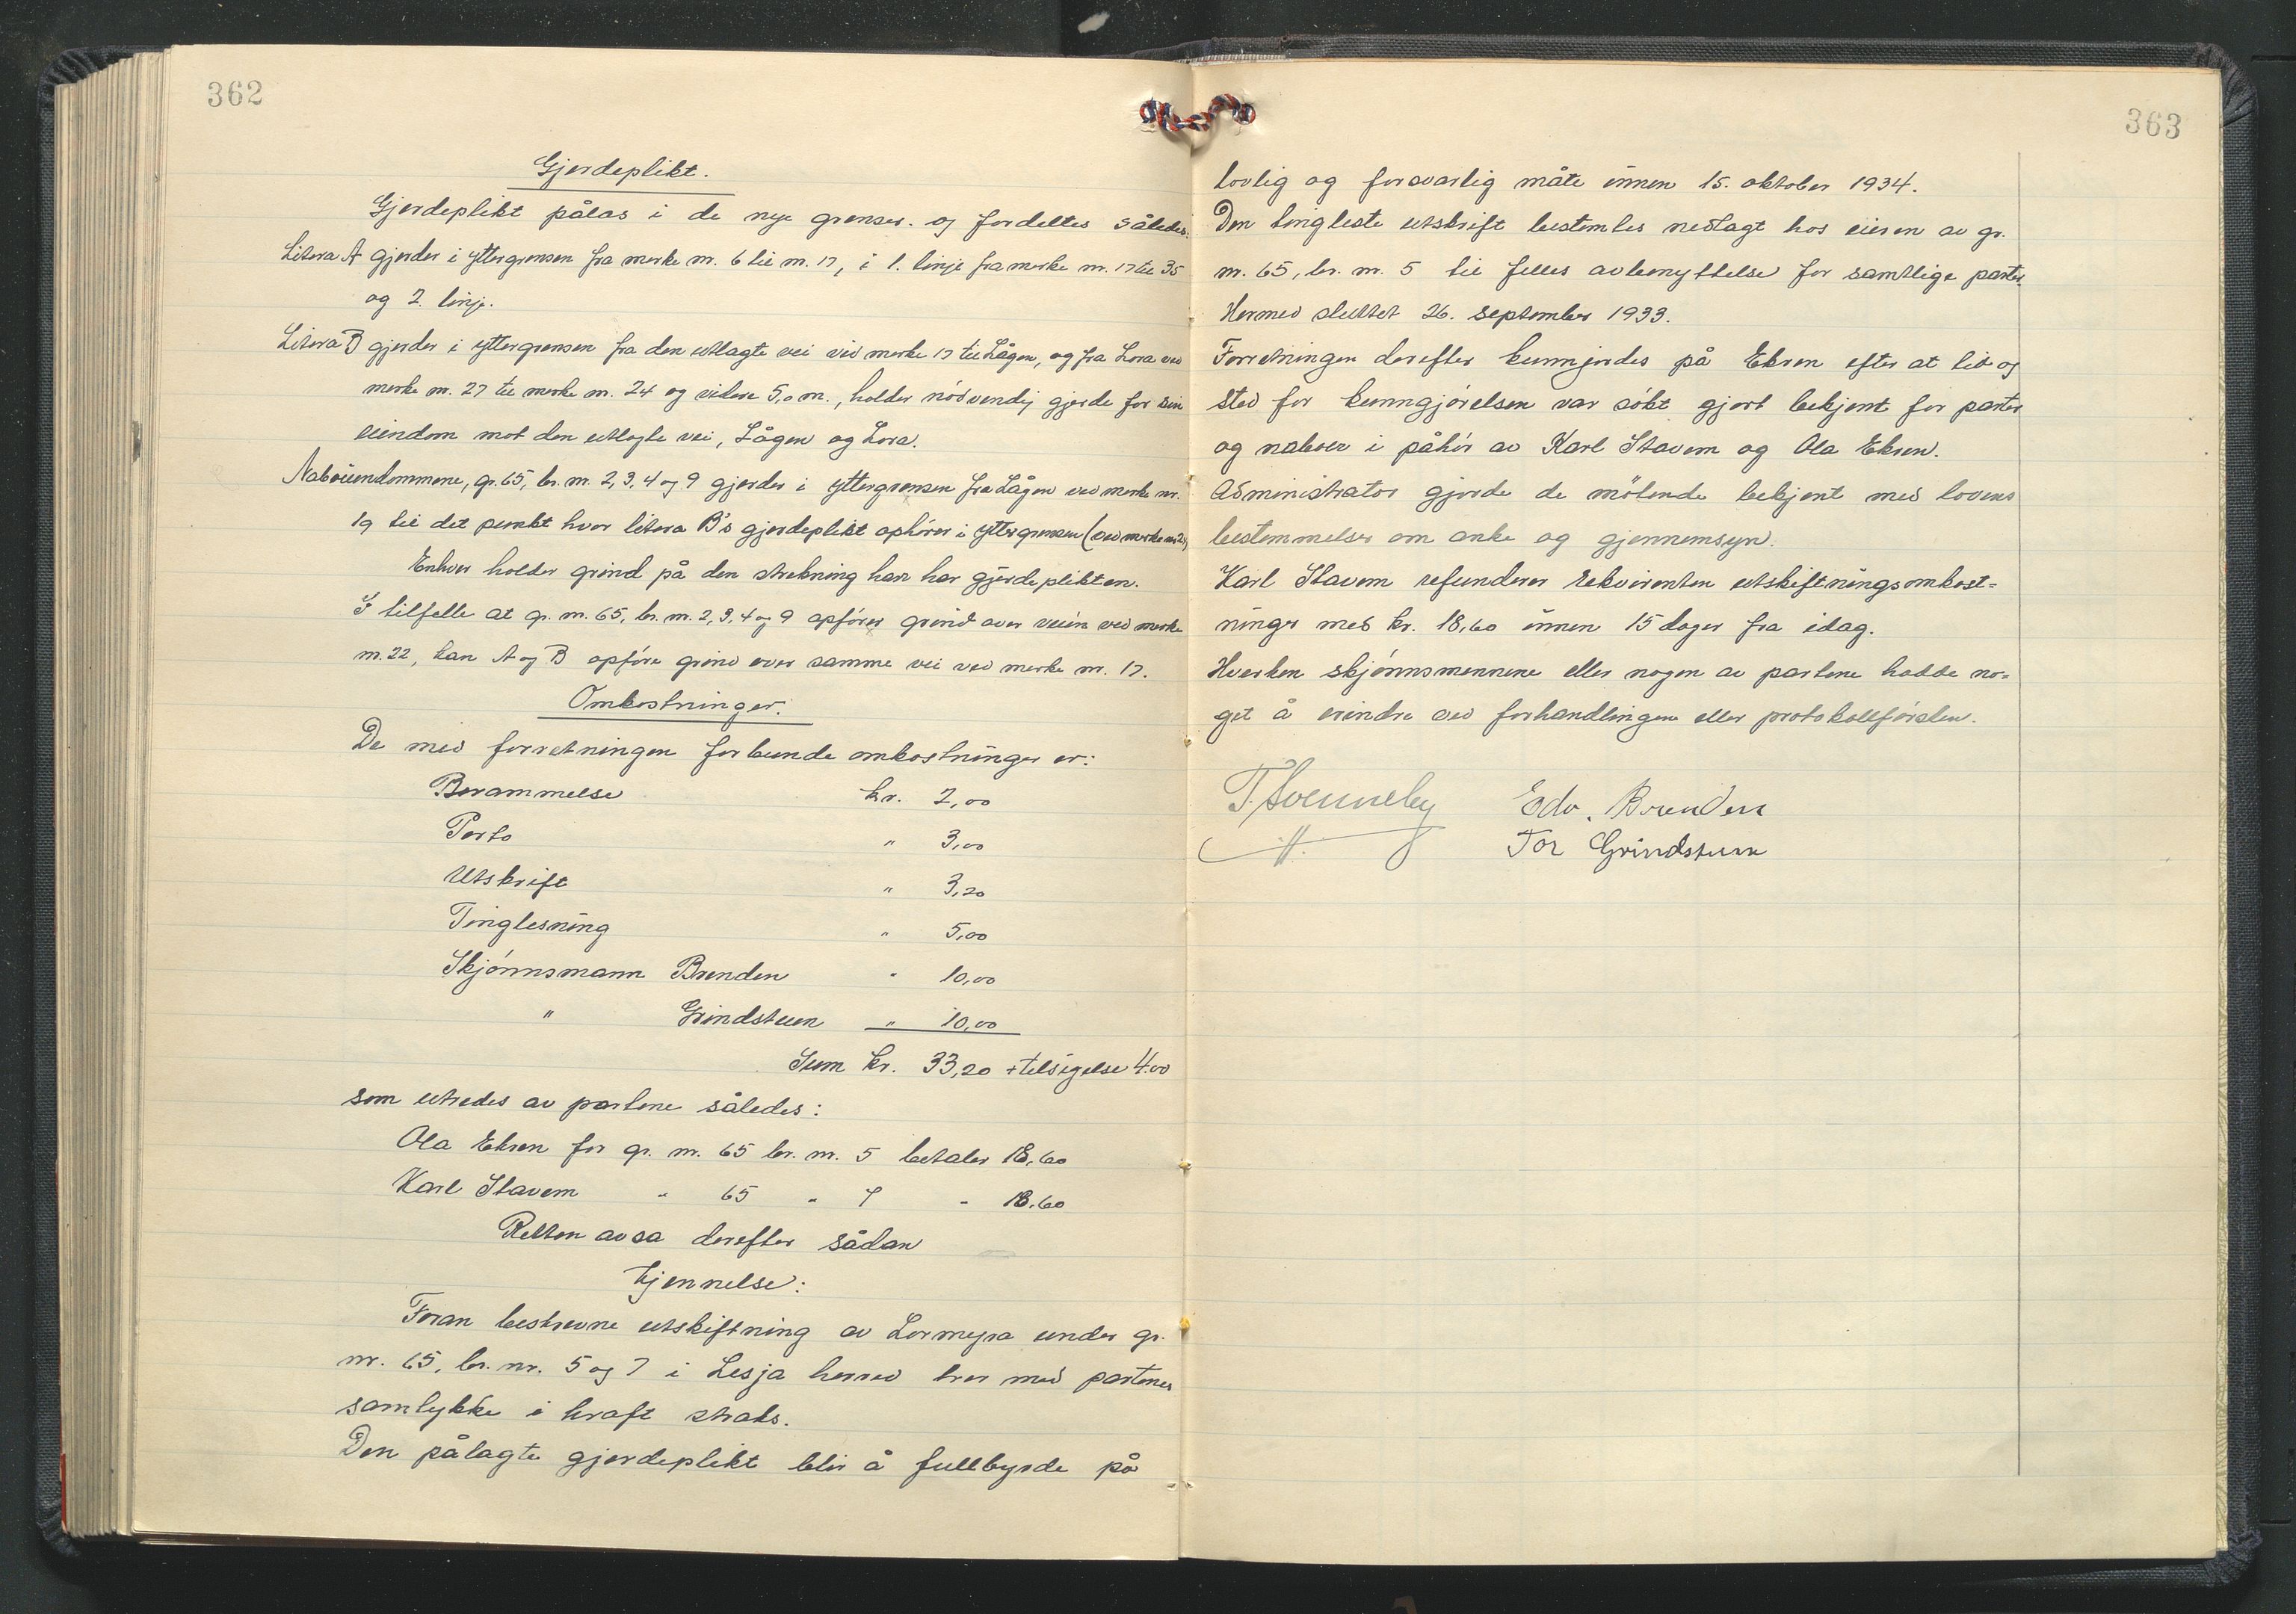 362
Gjerdeplikt.
Gjerdeplikt pålas i de nye grenser og fordeltes således:
Litera A gjerder i yttergrensen fra merke nr. 6 til nr. 17, i 1. linje fra merke nr. 17 til 35
og 2. linje.
Litera B gjerder i yttergrensen fra den utlagte vei ved merke 17 til Lågen, og fra Lora ved
merke nr. 27 til merke nr. 24 og videre 5,0 m., holder nödvendig gjerde for sin
eiendom mot den utlagte vei, Lågen og Lora.
Naboeiendommene, gr. 65, br. nr. 2, 3, 4 og 9 gjerder i yttergrensen fra Lågen ved merke nr.
19 til det punkt hvor litera B's gjerdeplikt ophörer i yttergrensen (ved merke nr.
Enhver holder grind på den strekning han har gjerdeplikten.
I tilfelle at gr. nr. 65, br. nr. 2, 3, 4 og 9 opförer grind over veien ved merke
nr. 22, kan A og B opföre grind over samme vei ved merke nr. 17.
Omkostninger.
De med forretningen forbundne omkostninger er:
Berammelse kr. 2,00
Porto " 3,00
Utskrift " 3,20
Tinglesning " 5,00
Skjönnsmann Brenden " 10,00
" Grindstuen " 10,00
Sum kr. 33,20 + tilsigelse 4.00
som utredes av partene således:
Ola Ekren for gr. nr. 65 br. nr. 5 betaler 18,60
Karl Stavem " 65 " 7 " 18,60
Retten avsa derefter sådan
kjennelse:
Foran beskrevne utskiftning av Lormyra under gr.
nr. 65, br. nr. 5 og 7 i Lesja herred trer med partenes
samtykke i kraft straks.
Den pålagte gjerdeplikt blir å fullbyrde på
363
lovlig og forsvarlig måte innen 15. oktober 1934.
Den tingleste utskrift bestemtes nedlagt hos eieren av gr.
nr. 65, br. nr. 5 til felles avbenyttelse for samtlige parter.
Hermed sluttet 26. september 1933.
Forretningen derefter kunngjordes på Ekren efter at tid og
sted for kunngjörelsen var sökt gjort bekjent for parter
og naboer i påhör av Karl Stavem og Ola Ekren.
Administrator gjorde de mötende bekjent med lovens
bestemmelser om anke og gjennemsyn.
Karl Stavem refunderer rekvirenten utskiftningsomkost-
ninger med kr. 18,60 innen 15 dager fra idag.
Hverken skjönnsmennene eller nogen av partene hadde no-
get å erindre ved forhandlingen eller protokollförslen.
T. Svenneby Edv. Brenden
Tor Grindstuen